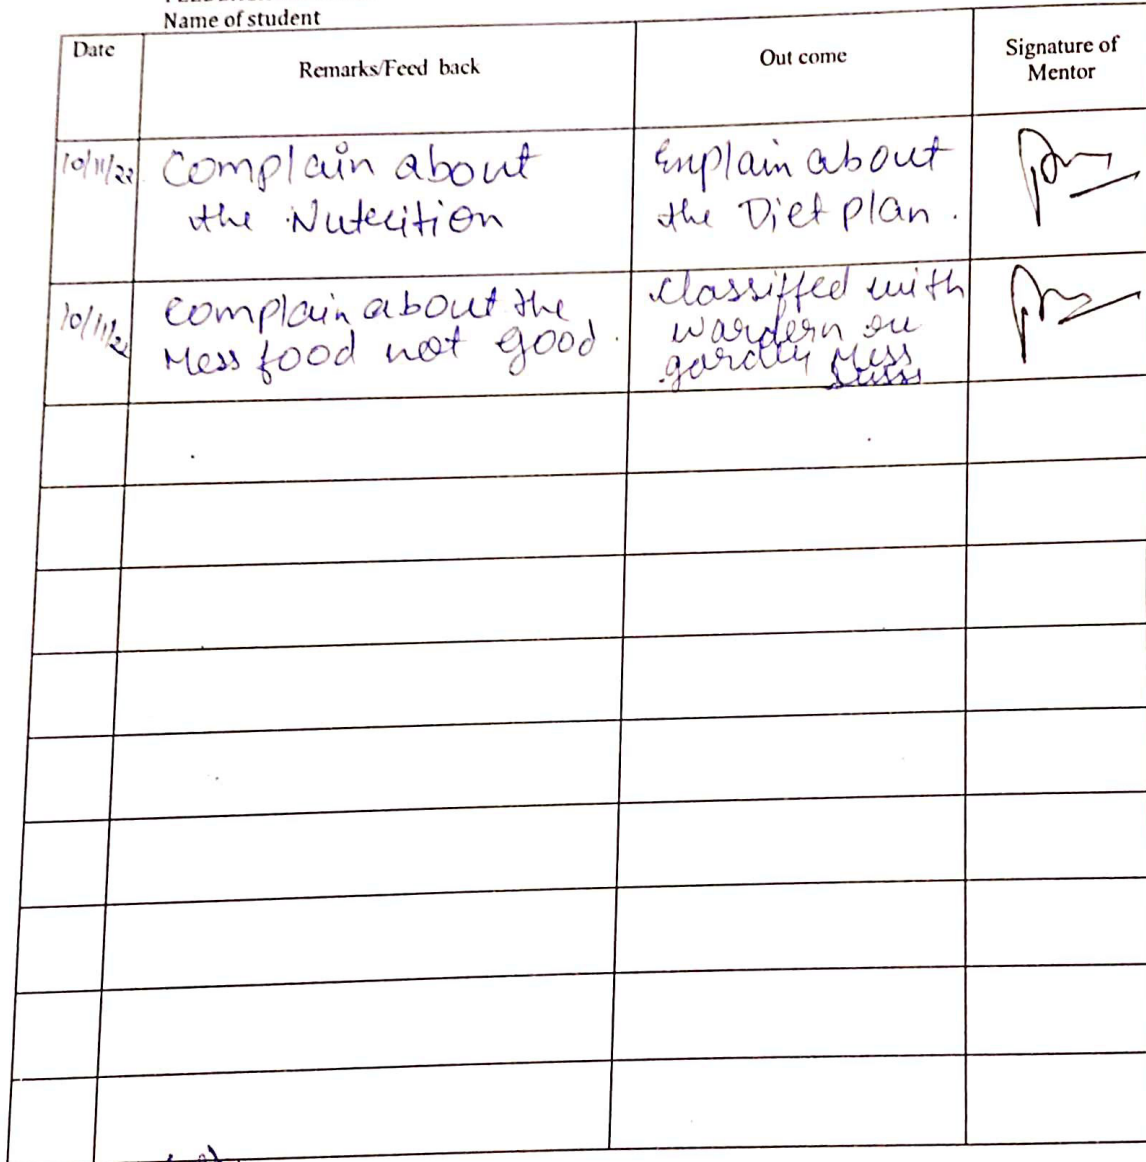 Name of student
Date
Remarks/Feed back
Out come
Signature of
Mentor
10/11/22
Complain about
the Nutrition
Explain about
the Diet plan.
10/11/22
complain about the
Mess food not good.
classiffed with
wardern re
gardly Mess